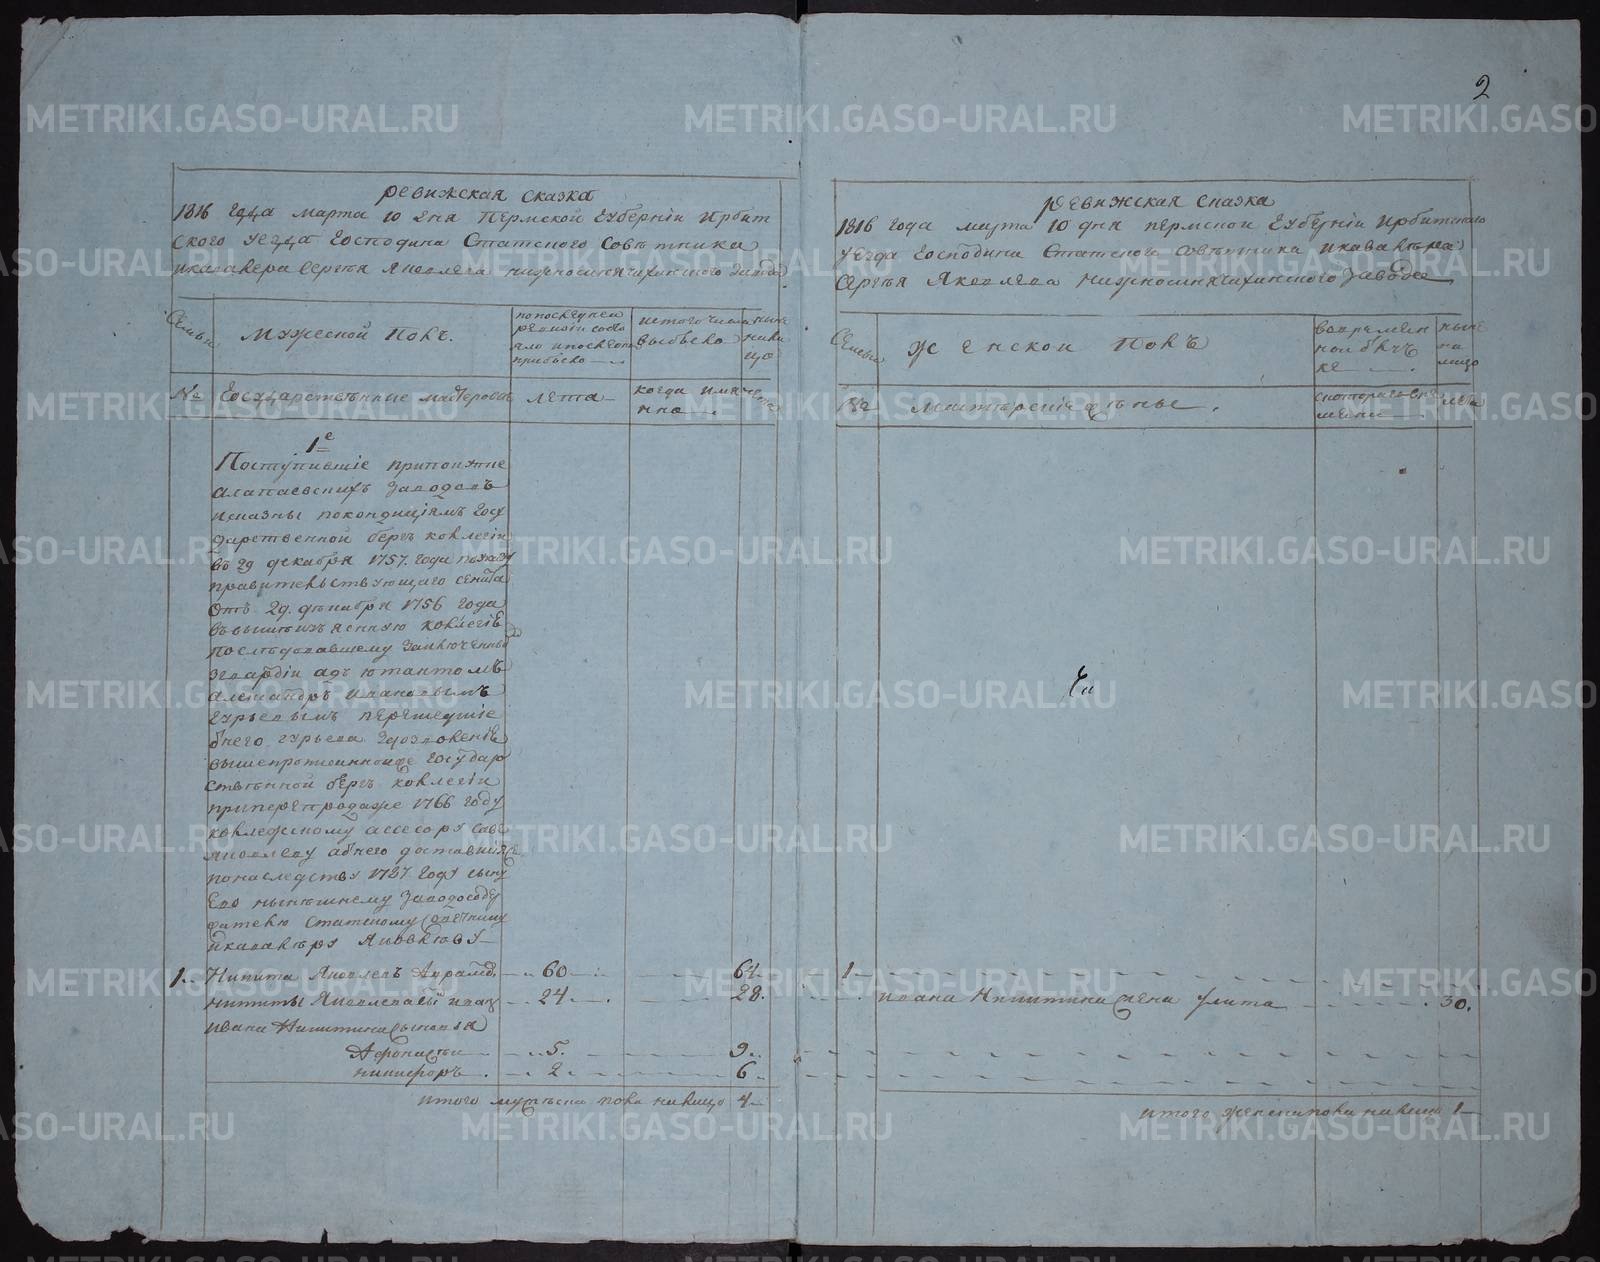 2
ревижская сказка
1816 года марта 10 дня Пермской Губерніи Ирбит
ского уезда Господина Статского Советника
и кавалера Сергея Яковлева нижносинячихинского завода
Семьи
Мужеской Полъ.
по последней
ревизіи состо
яло и после того
прибыло
из того числа
выбыло
ныне
нали
цо
№
Государственные мастеровые
лета
когда имя
нно
лета
1е
Поступившіе при покупке
алапаевскихъ заводовъ
ис казны по кондиціямъ Госу
дарственной бергъ коллегіи
въ 29 декабря 1757. года по указу
правительствующаго сената
отъ 29. декабря 1756 года
последовавшему заключенных
з гвардіи адъютантомъ
Александръ Ивановымъ
Гурьевымъ перешедшіе
Государ
ственной бергъ коллегіи
при перепродаже 1766 году
коллежскому ассесору Саве
Яковлеву
по наследству 1787 году сыну
Его нынешнему заводосоде
ржателю статскому советнику
и кавалеру Яковлеву
1. Никита Яковлевъ 60 64
Никиты Яковлева 24 28.
Ивана Никитина сыновья
Афонасеи 5. 9.
Никифоръ. 2 6
итого мужеска пола налицо 4
ревижская сказка
1816 года марта 10 дня пермской Губерніи Ирбитского
уезда Господина Статского советника и кавалера
Сергея Яковлева нижносинячихинского завода
Семьи
Женской Полъ
во времен
ной отлуч
ке
ныне
на
лицо
№
.
с которого вре
мени
лета
1
Ивана Никитина жена Улита 30.
итого женска пола налицо 1
METRIKI.GASO-URAL.RU